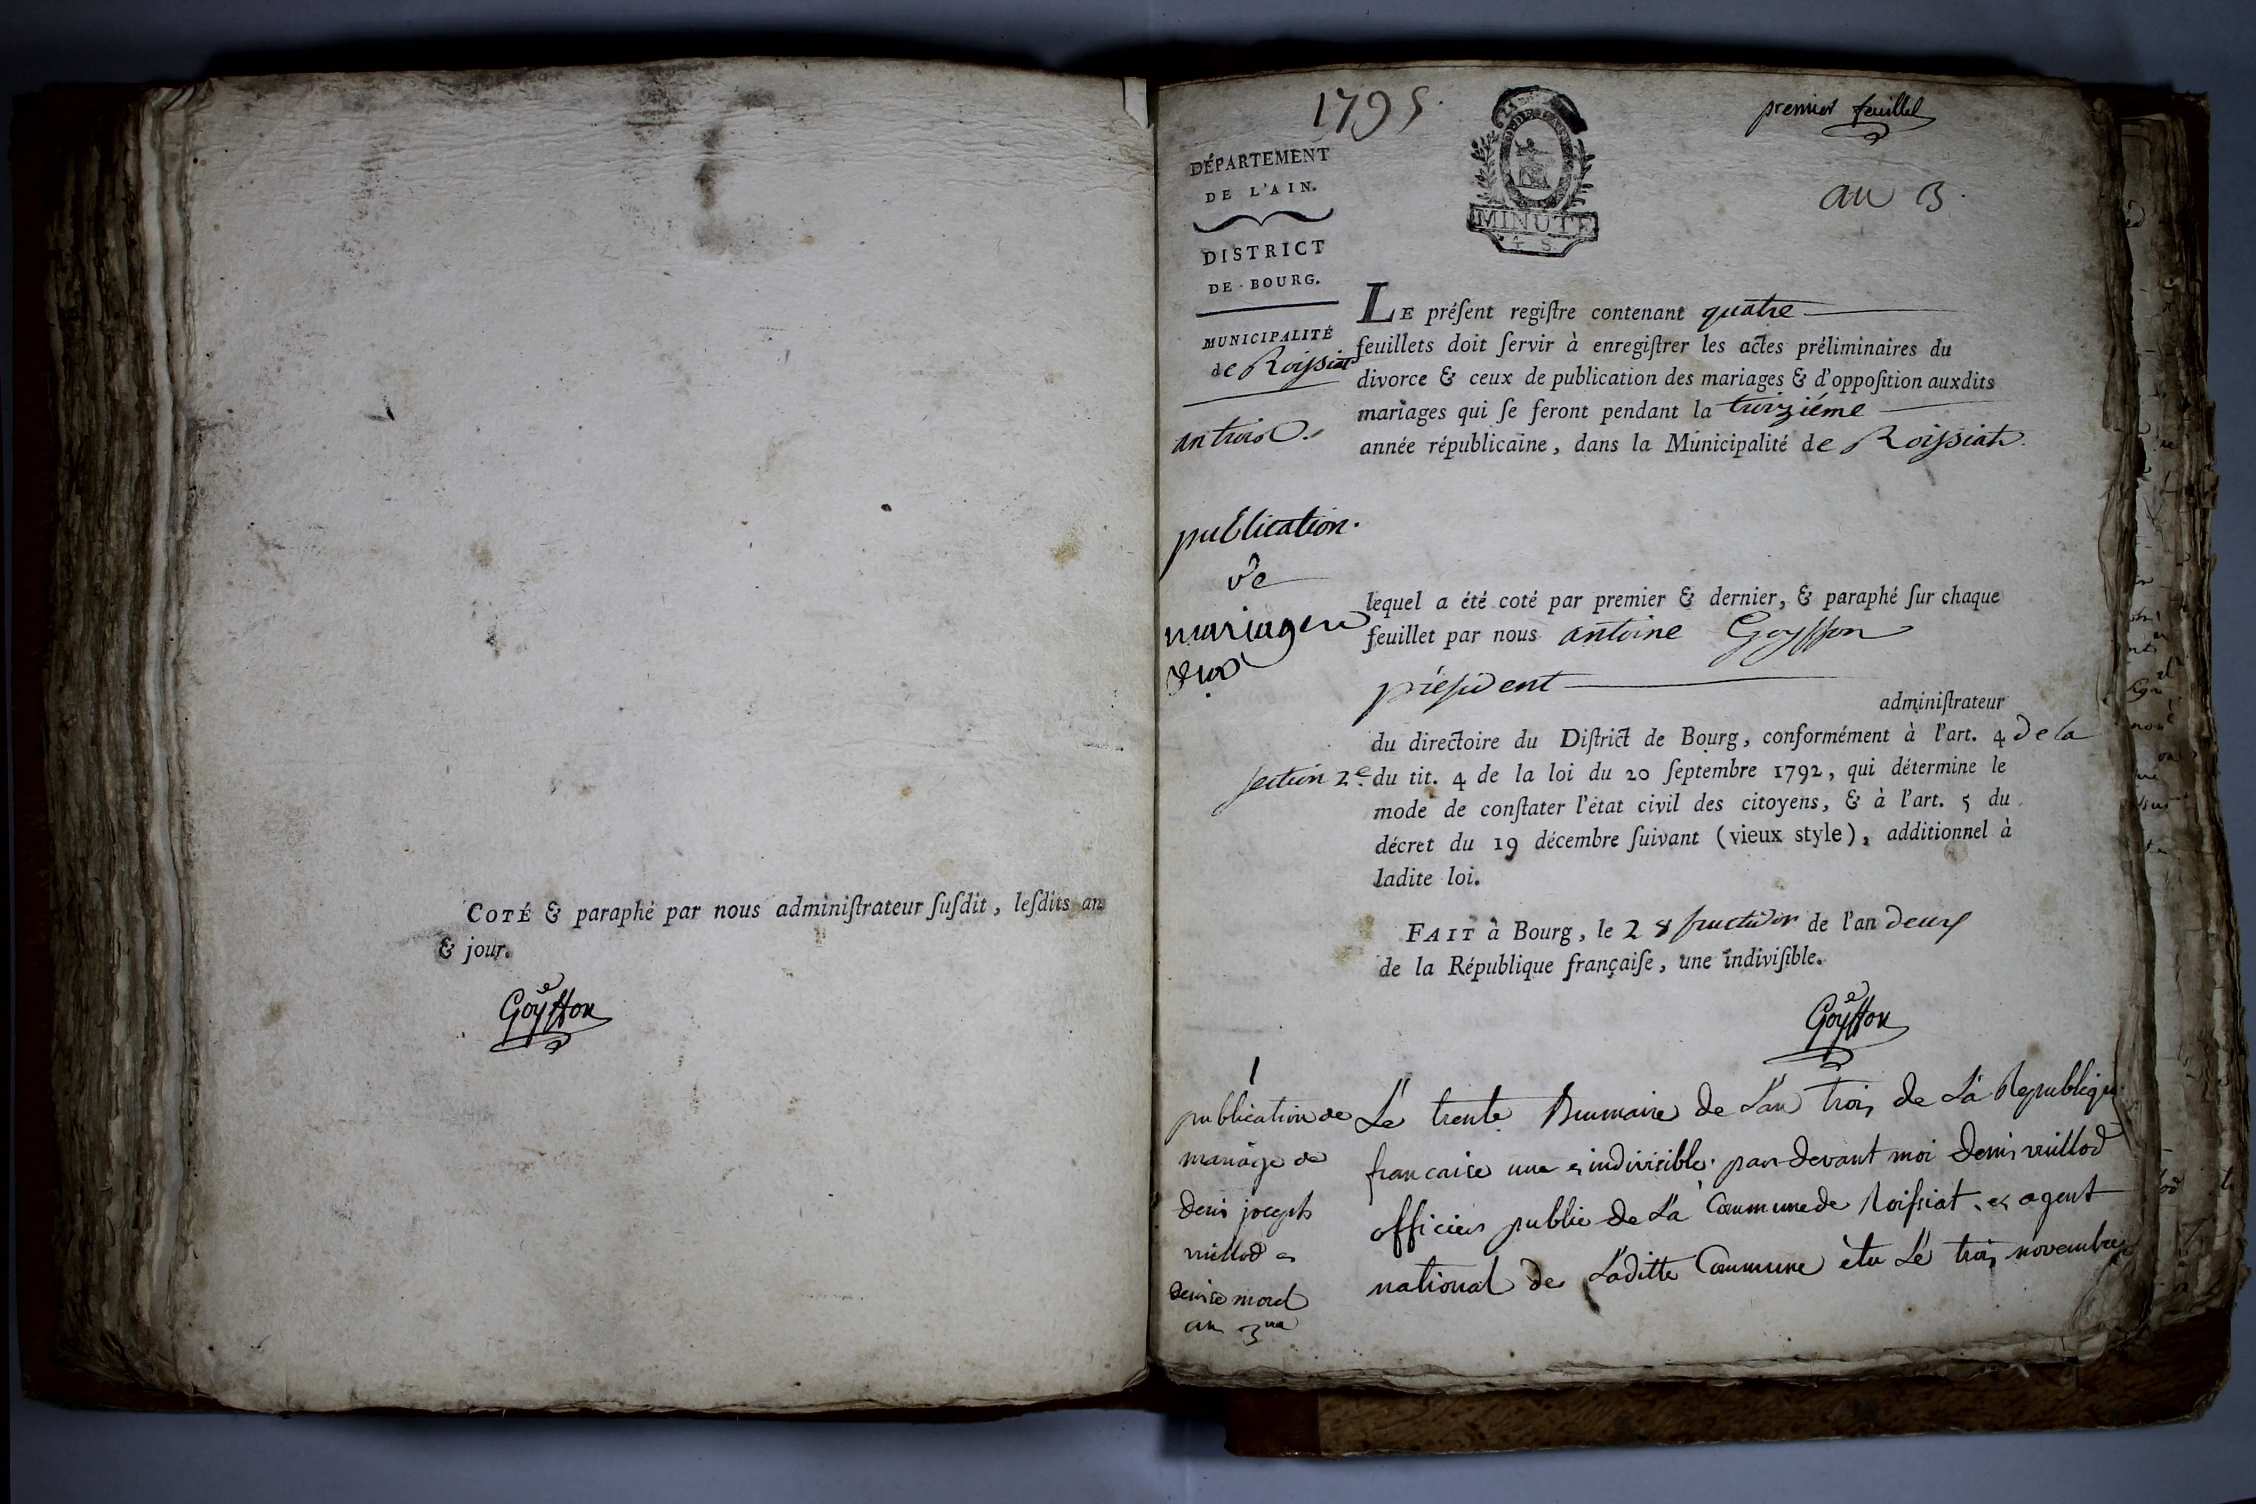 COTÉ & paraphé par nous administrateur susdit, lesdits an
& jour.
Goyffon
1795.
premier feuillet
an 3.
DÉPARTEMENT
DE L'AIN.
DISTRICT
DE BOURG.
MUNICIPALITÉ
de Roissiat
an trois
MINUTE
4 S
LE présent registre contenant quatre
feuillets doit servir à enregistrer les actes préliminaires du
divorce & ceux de publication des mariages & d'opposition auxdits
mariages qui se feront pendant la troizième
année républicaine, dans la Municipalité de Roissiat.
publication.
de
mariages
lequel a été coté par premier & dernier, & paraphé sur chaque
feuillet par nous antoine Goyffon
président
administrateur
du directoire du District de Bourg, conformément à l'art. 4 de la
section 2e. du tit. 4 de la loi du 20 septembre 1792, qui détermine le
mode de constater l'état civil des citoyens, & à l'art. 5 du
décret du 19 décembre suivant (vieux style), additionnel à
ladite loi.
FAIT à Bourg, le 28 fructidor de l'an deux
de la République française, une indivisible.
Goyffon
1
publication de
mariage de
denis joseph
vuillod et
denise morel
an 3me
Le trente Brumaire de L'an trois de La Republique
francaise une et indivisible. par devant moi denis vuillod
officier public de La Commune de Roissiat et agent
national de Laditte Commune élu Le trois novembre